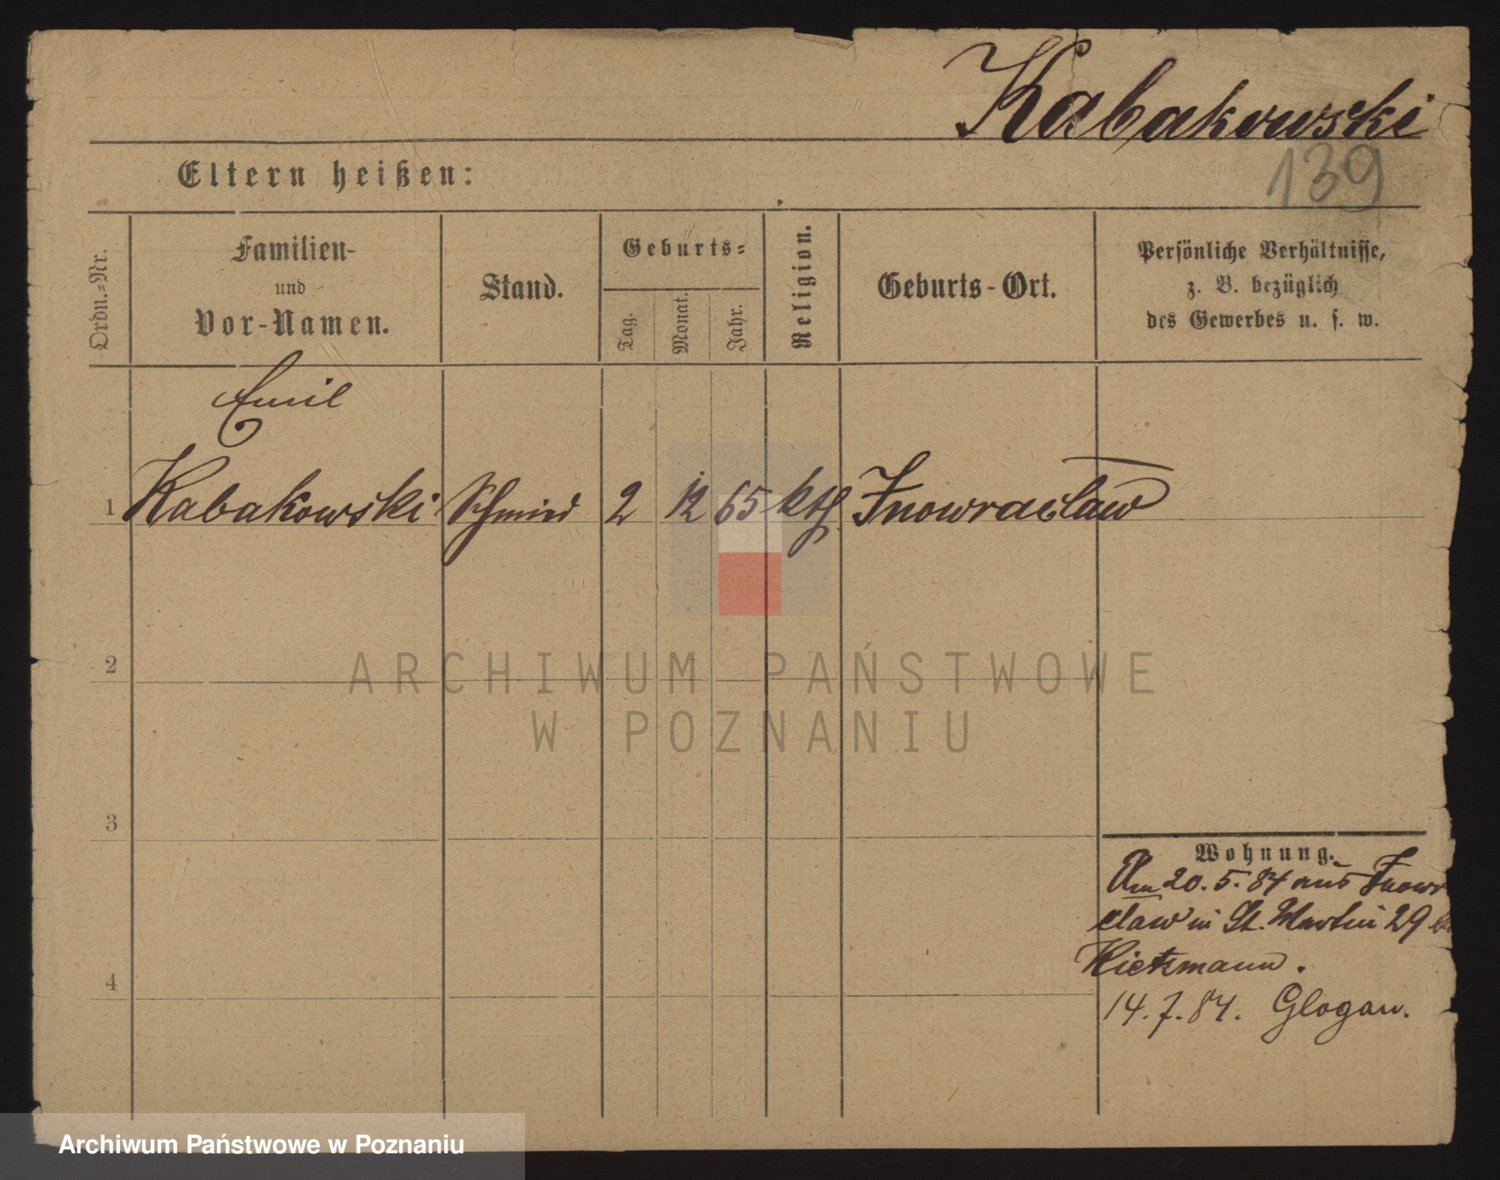 Kabakowski
139
Eltern heißen:
Ordn.-Nr.
Familien-
und
Vor-Namen.
Stand.
Geburts-
Tag.
Monat.
Jahr.
Religion.
Geburts-Ort.
Persönliche Verhältnisse,
z. B. bezüglich
des Gewerbes u. s. w.
Emil
1 Kabakowski Schmied 2 12 65 kth Inowraclaw
2
3
4
Wohnung.
Am 20. 5. 84 aus Inowr
claw in St. Martin 29
Kietzmann.
14. 7. 84. Glogau.
ARCHIWUM PAŃSTWOWE
W POZNANIU
Archiwum Państwowe w Poznaniu